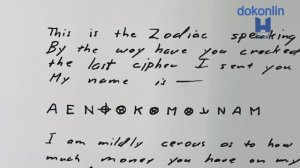 dokonlin
This is the Zodiac speaking
By the way have you cracked
the last cipher I sent you
My name is —
A E N ⌖ ⊗ K ⊗ M ⊗ ⅃ N A M
I am mildly cerous as to how
much money you have on my